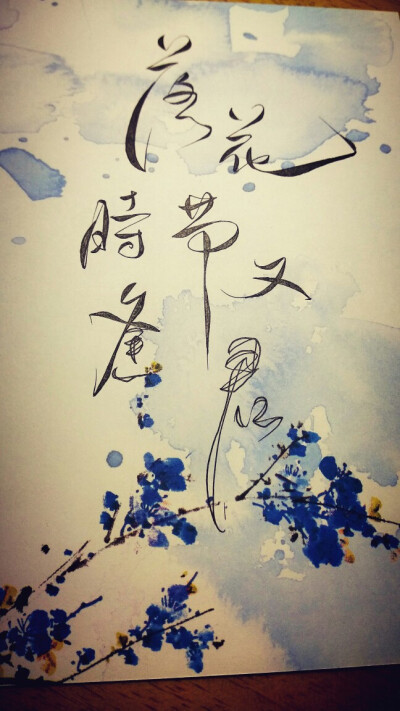 落花
時节又
逢君